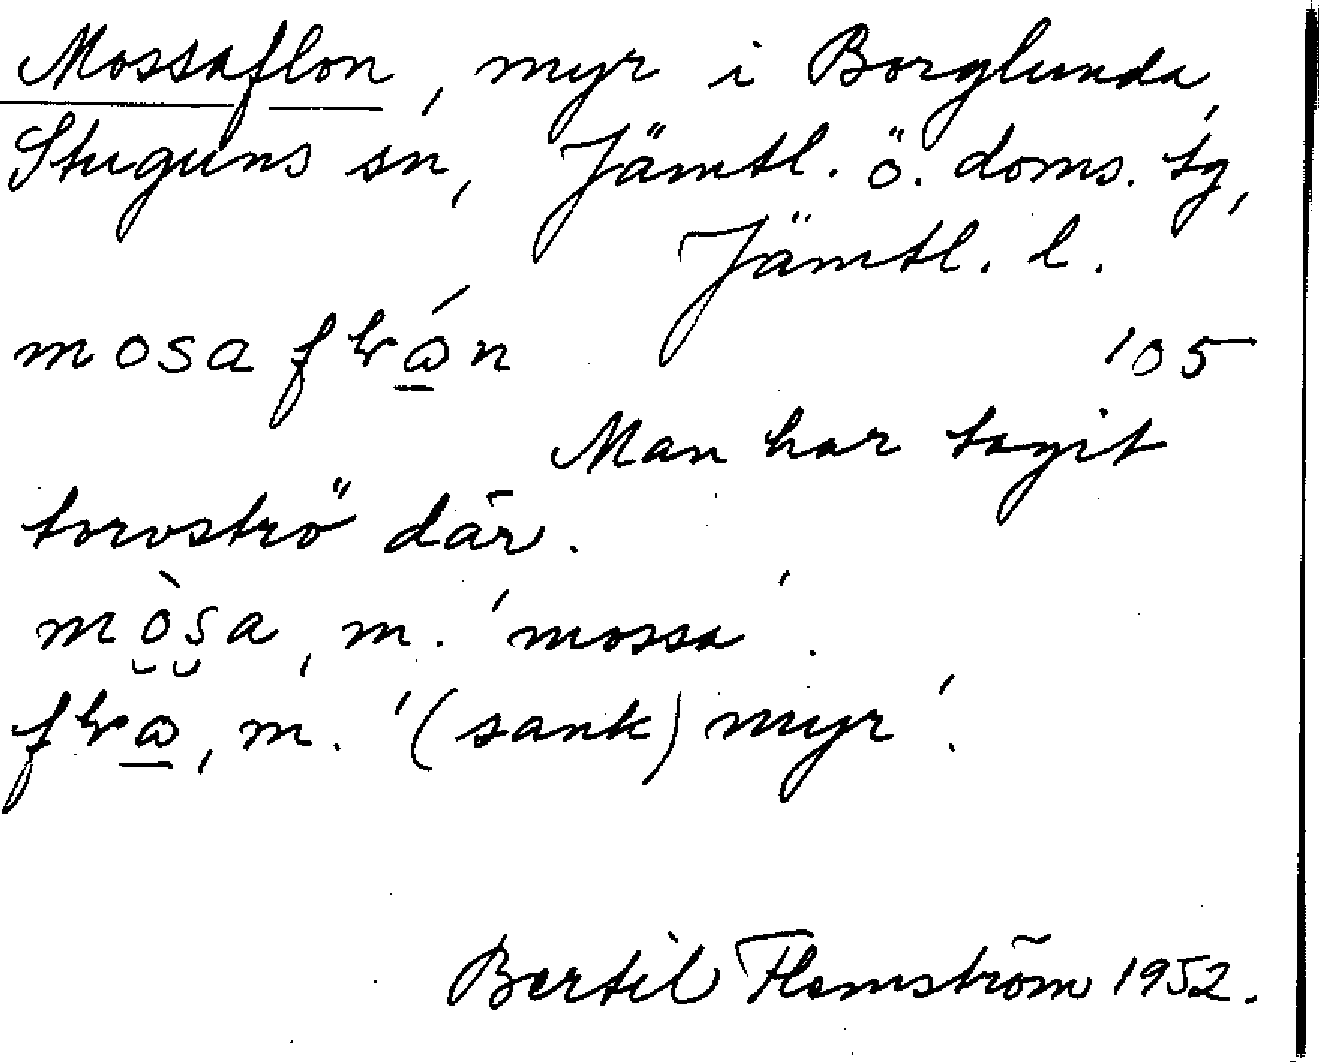 Mossaflon, myr i Borglunda,
Stuguns sn, Jämtl. ö. doms. tg,
Jämtl. l.
mosa 105
Man har tagit
torvströ där.
m. 'mossa'.
m. '(sank) myr'.
Bertil Flemström 1952.